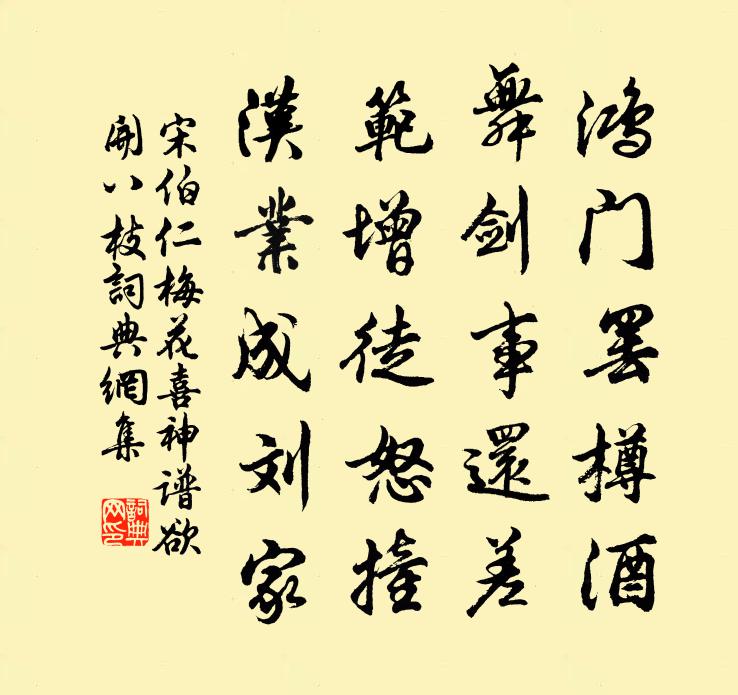 鸿门罢樽酒
舞剑事還差
範增徒怒撞
漢業成刘家
宋伯仁梅花喜神谱欲
開八枝詞典網集
詞典
网印